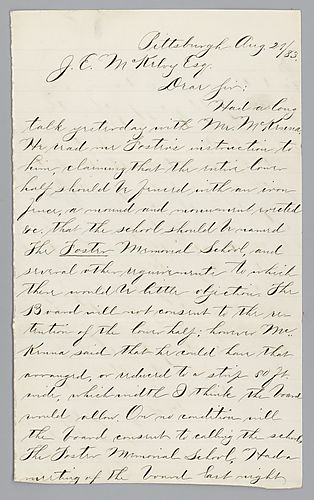 Pittsburgh Aug 29/83.
J. E. McKelvy Esq.
Dear Sir:
Had a long
talk yesterday with Mr. McKenna,
He read me Foster's instruction to
him, claiming that the entire lower
half should be fenced with an iron
fence, a mound and monument erected
&c, that the school should be named
The Foster Memorial School, and
several other requirements to which
there would be little objection. The
Board will not consent to the re-
tention of the lower half; however Mc-
Kenna said that he could have that
arranged, or reduced to a strip 50 ft.
wide, which width I think the board
would allow. On no condition will
the board consent to calling the school,
The Foster Memorial School, Had a
meeting of the board last night,